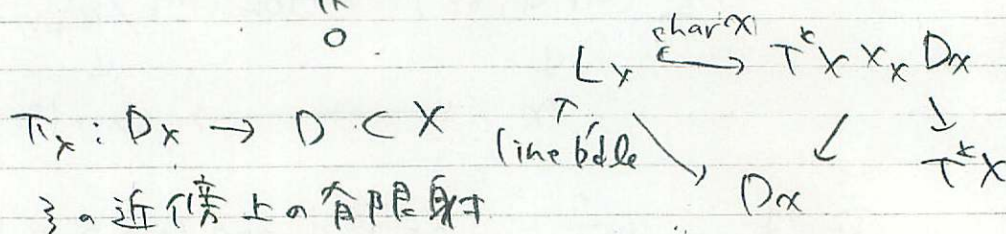 0
L_χ char χ T*X ×_X D_χ
π_χ : D_χ → D ⊂ X
line bdle
D_χ
T*X
ξの近傍上の有限射